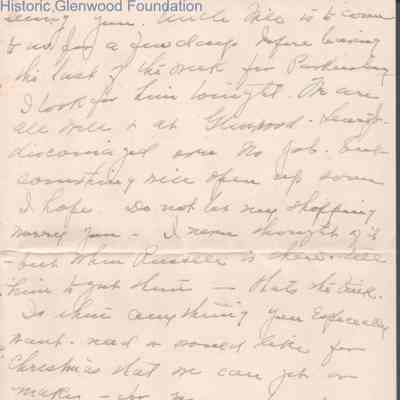 Historic Glenwood Foundation
seeing you. Uncle Will is to come
to us for a few days before leaving
the last of the week for Parkersburg
I look for him tonight. We are
all well & at Glenwood.
discouraged over no job. But
something will open up soon
I hope. Do not let my shopping
worry you - I never thought of it
- but when Russell is there. tell
him to get them — thats the
Is there anything you especially
want - need or would like for
Christmas that we can get or
make - for